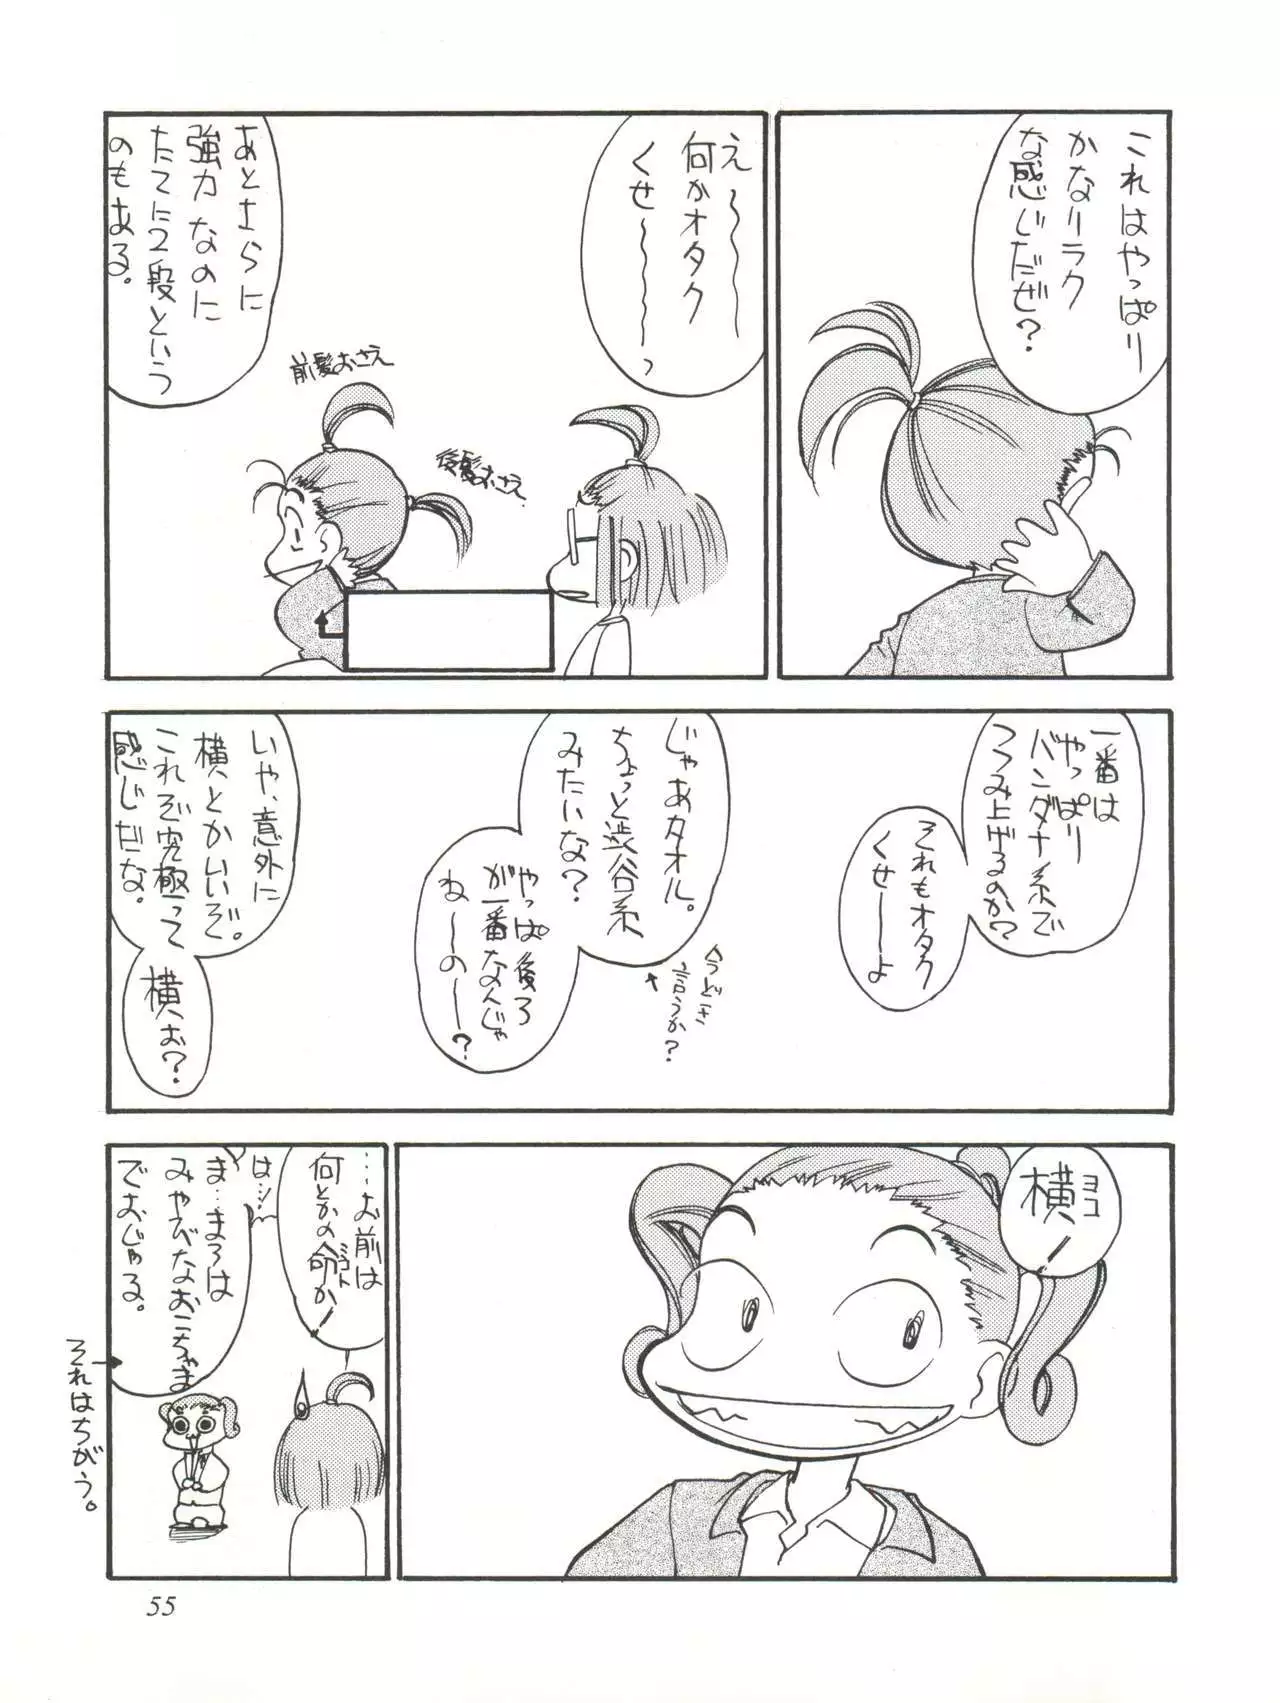 これはやっぱり
かなりラク
な感じだぜ?
え〜〜〜
何かオタク
くせ〜〜〜っ
前髪おさえ
後髪おさえ
あとさらに
強力なのに
たてに2段という
のもある。
一番は
やっぱり
バンダナ系で
つつみ上げるのか?
それもオタク
くせーーよ
じゃあタオル。
ちょっと渋谷系
みたいな?
今どき
言うか?
やっぱ後ろ
が一番なんじゃ
ねーのー?
いや、意外に
横とかいいぞ。
これぞ究極って
感じだな。
横ぉ?
横ヨコ
…お前は
何とかの命ミコトか
は…!
ま…まろは
みやびなおこちゃま
でおじゃる。
それはちがう。
55